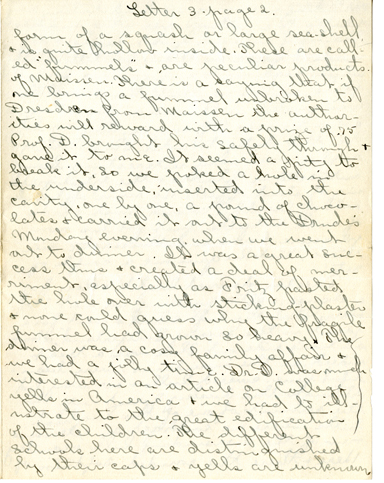 Letter 3 page 2.
form of a squash or large sea-shell
& is quite hollow inside. These are call-
ed "fummels" & are peculiar products
of Maissen. There is a saying that if
one brings a fummel unbroken to
Dresden from Maissen the author-
ities will reward with a prize of 75
Prof. D. brought his safely through &
gave it to me. It seemed a pity to
break it, so we poked a hole in
the underside, inserted into the
cavity, one by one, a pound of choco-
lates & carried it out to the Drudes
Monday evening when we went
out to dinner. It was a great suc-
cess thus & created a deal of mer-
riment, especially as Fritz pasted
the hole over with sticking-plaster
& none could guess why the fragile
fummel had grown so heavy. The
dinner was a cosy family affair &
we had a jolly time. Dr. D. was much
interested in an article on College
yells in America & we had to ill-
ustrate to the great edification
of the children. The different
schools here are distinguished
by their caps & yells are unknown